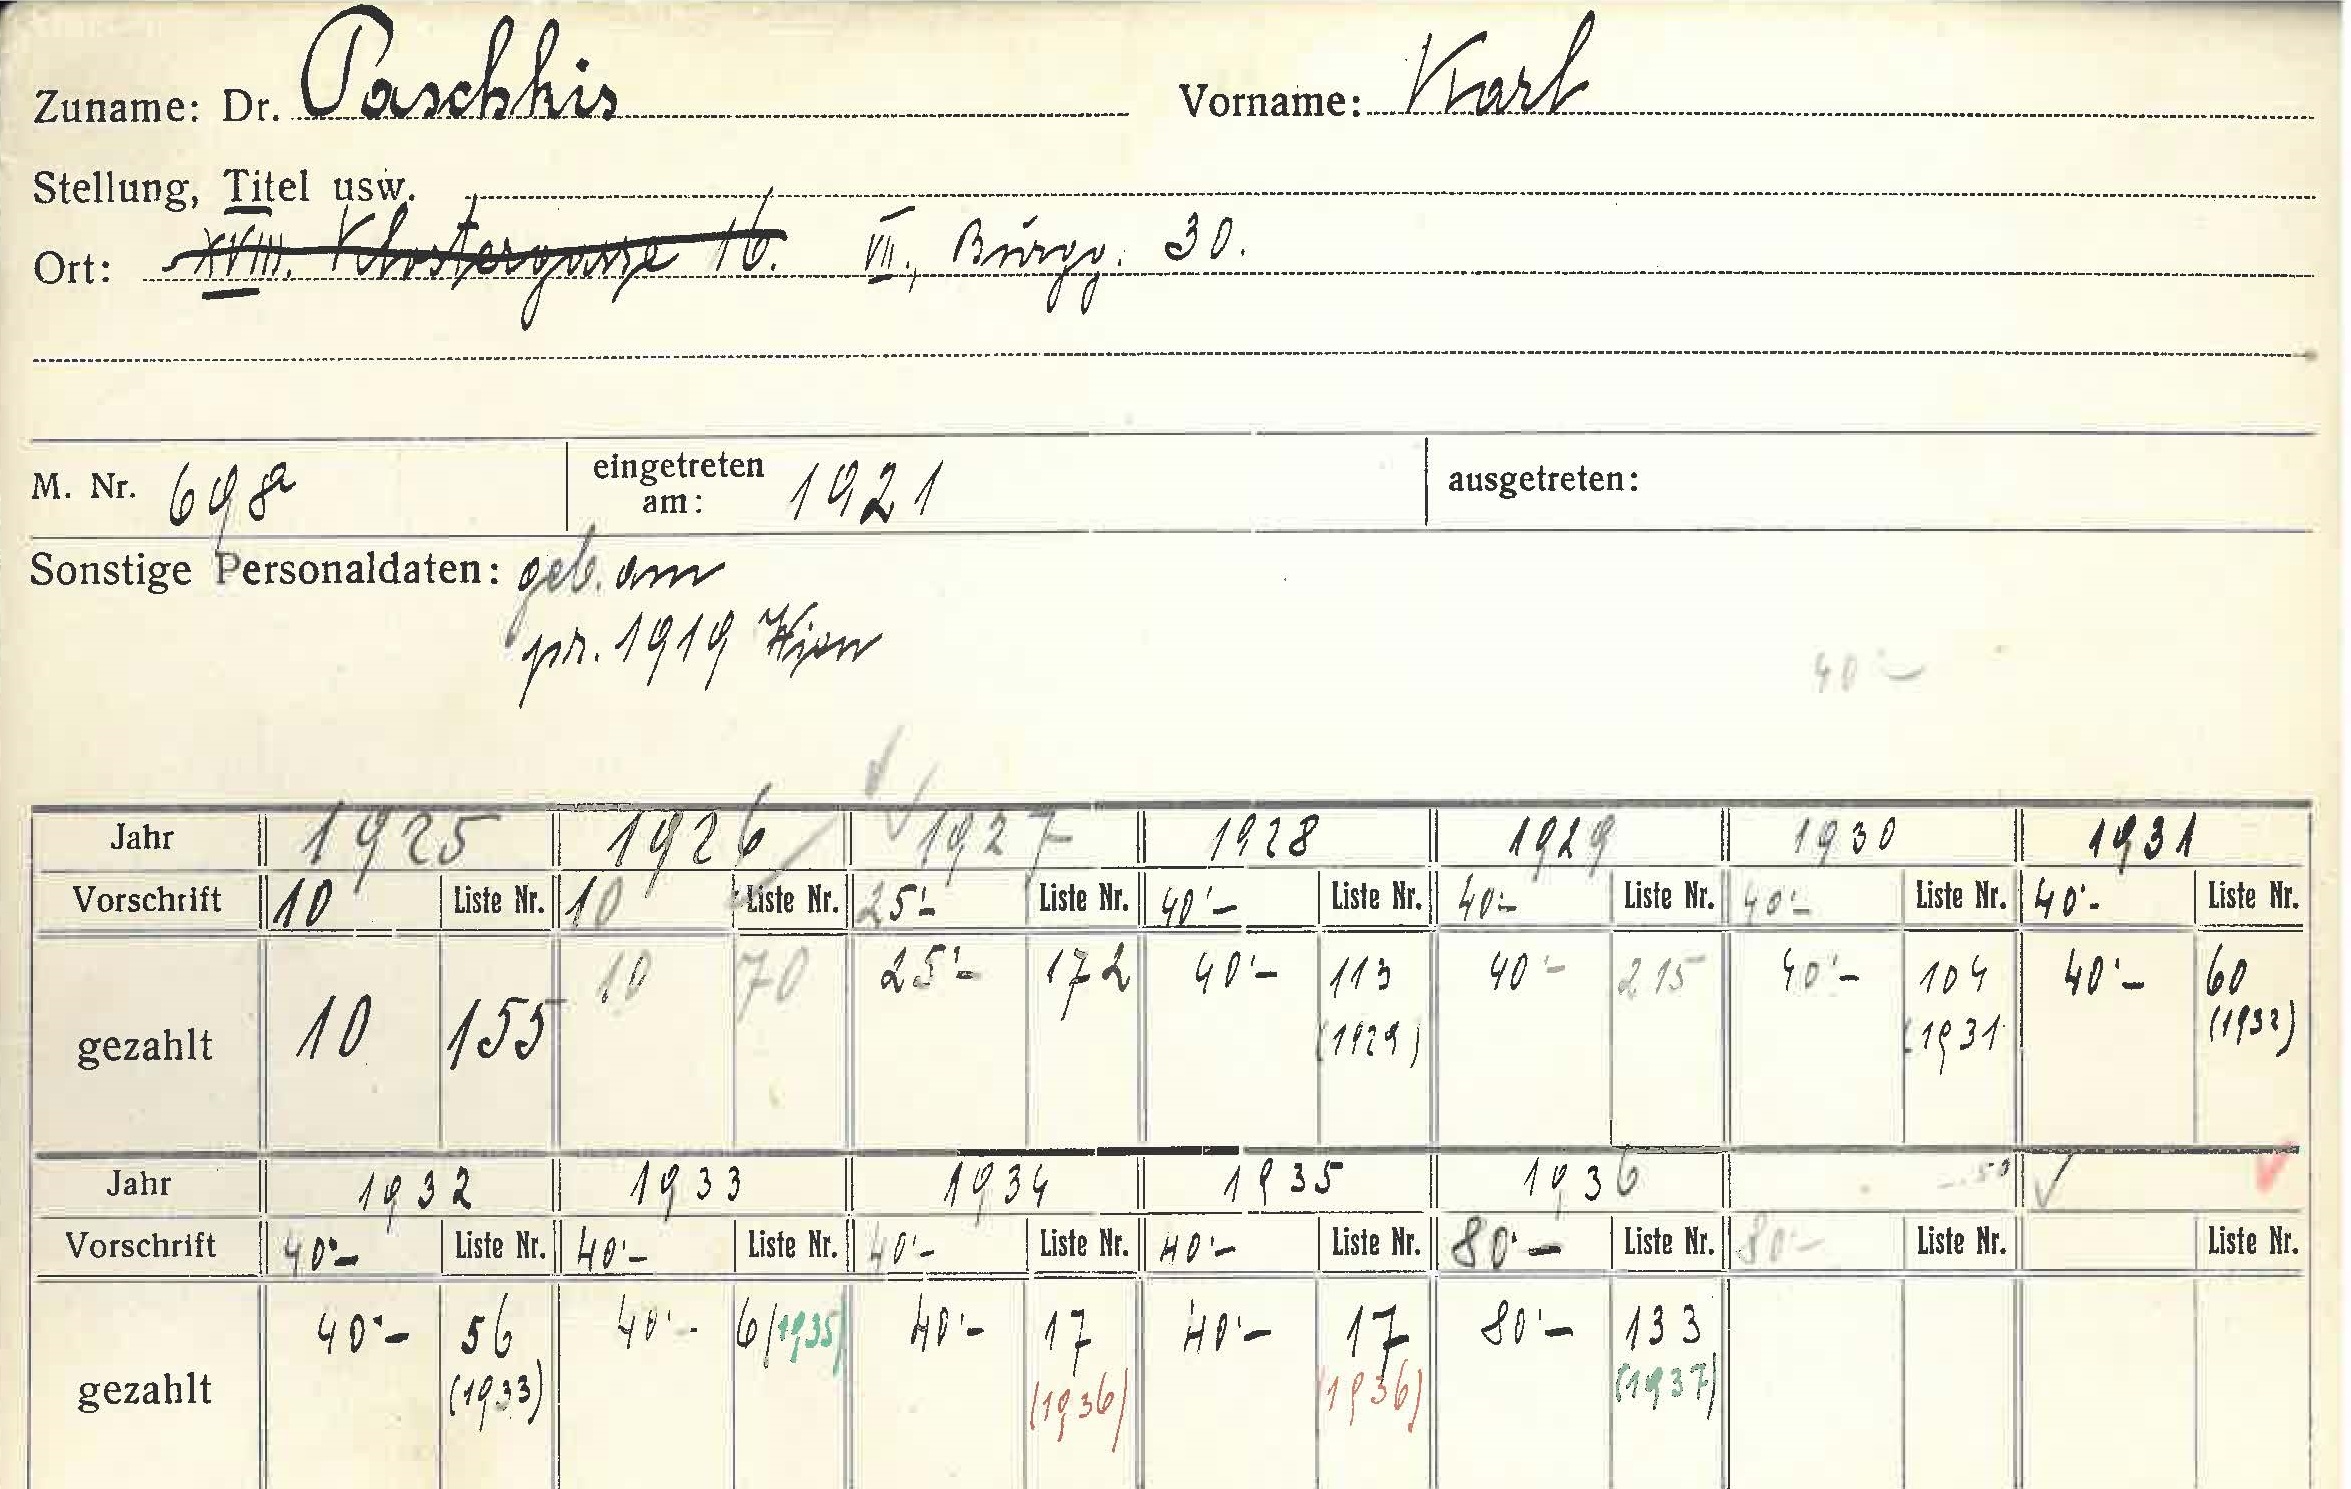 Zuname: Dr. Paschkis Vorname: Karl
Stellung, Titel usw.
Ort: XVIII. Klostergasse 16. VII., Burgg. 30.
M. Nr. 698 eingetreten am: 1921 ausgetreten:
Sonstige Personaldaten: geb. am
pr. 1919 Wien
40'-
Jahr 1925 1926 1927 1928 1929 1930 1931
Vorschrift 10 Liste Nr. 10 Liste Nr. 25'- Liste Nr. 40'- Liste Nr. 40'- Liste Nr. 40'- Liste Nr. 40'- Liste Nr.
10 70 25'- 172 40'- 113 40'- 215 40'- 104 40'- 60
gezahlt 10 155 (1929) (1931 (1932)
Jahr 1932 1933 1934 1935 1936 -.50
Vorschrift 40'- Liste Nr. 40'- Liste Nr. 40'- Liste Nr. 40'- Liste Nr. 80'- Liste Nr. 80'- Liste Nr. Liste Nr.
40'- 56 40'- 6/1935) 40'- 17 40'- 17 80'- 133
gezahlt (1933) (1936) (1936) (1937)